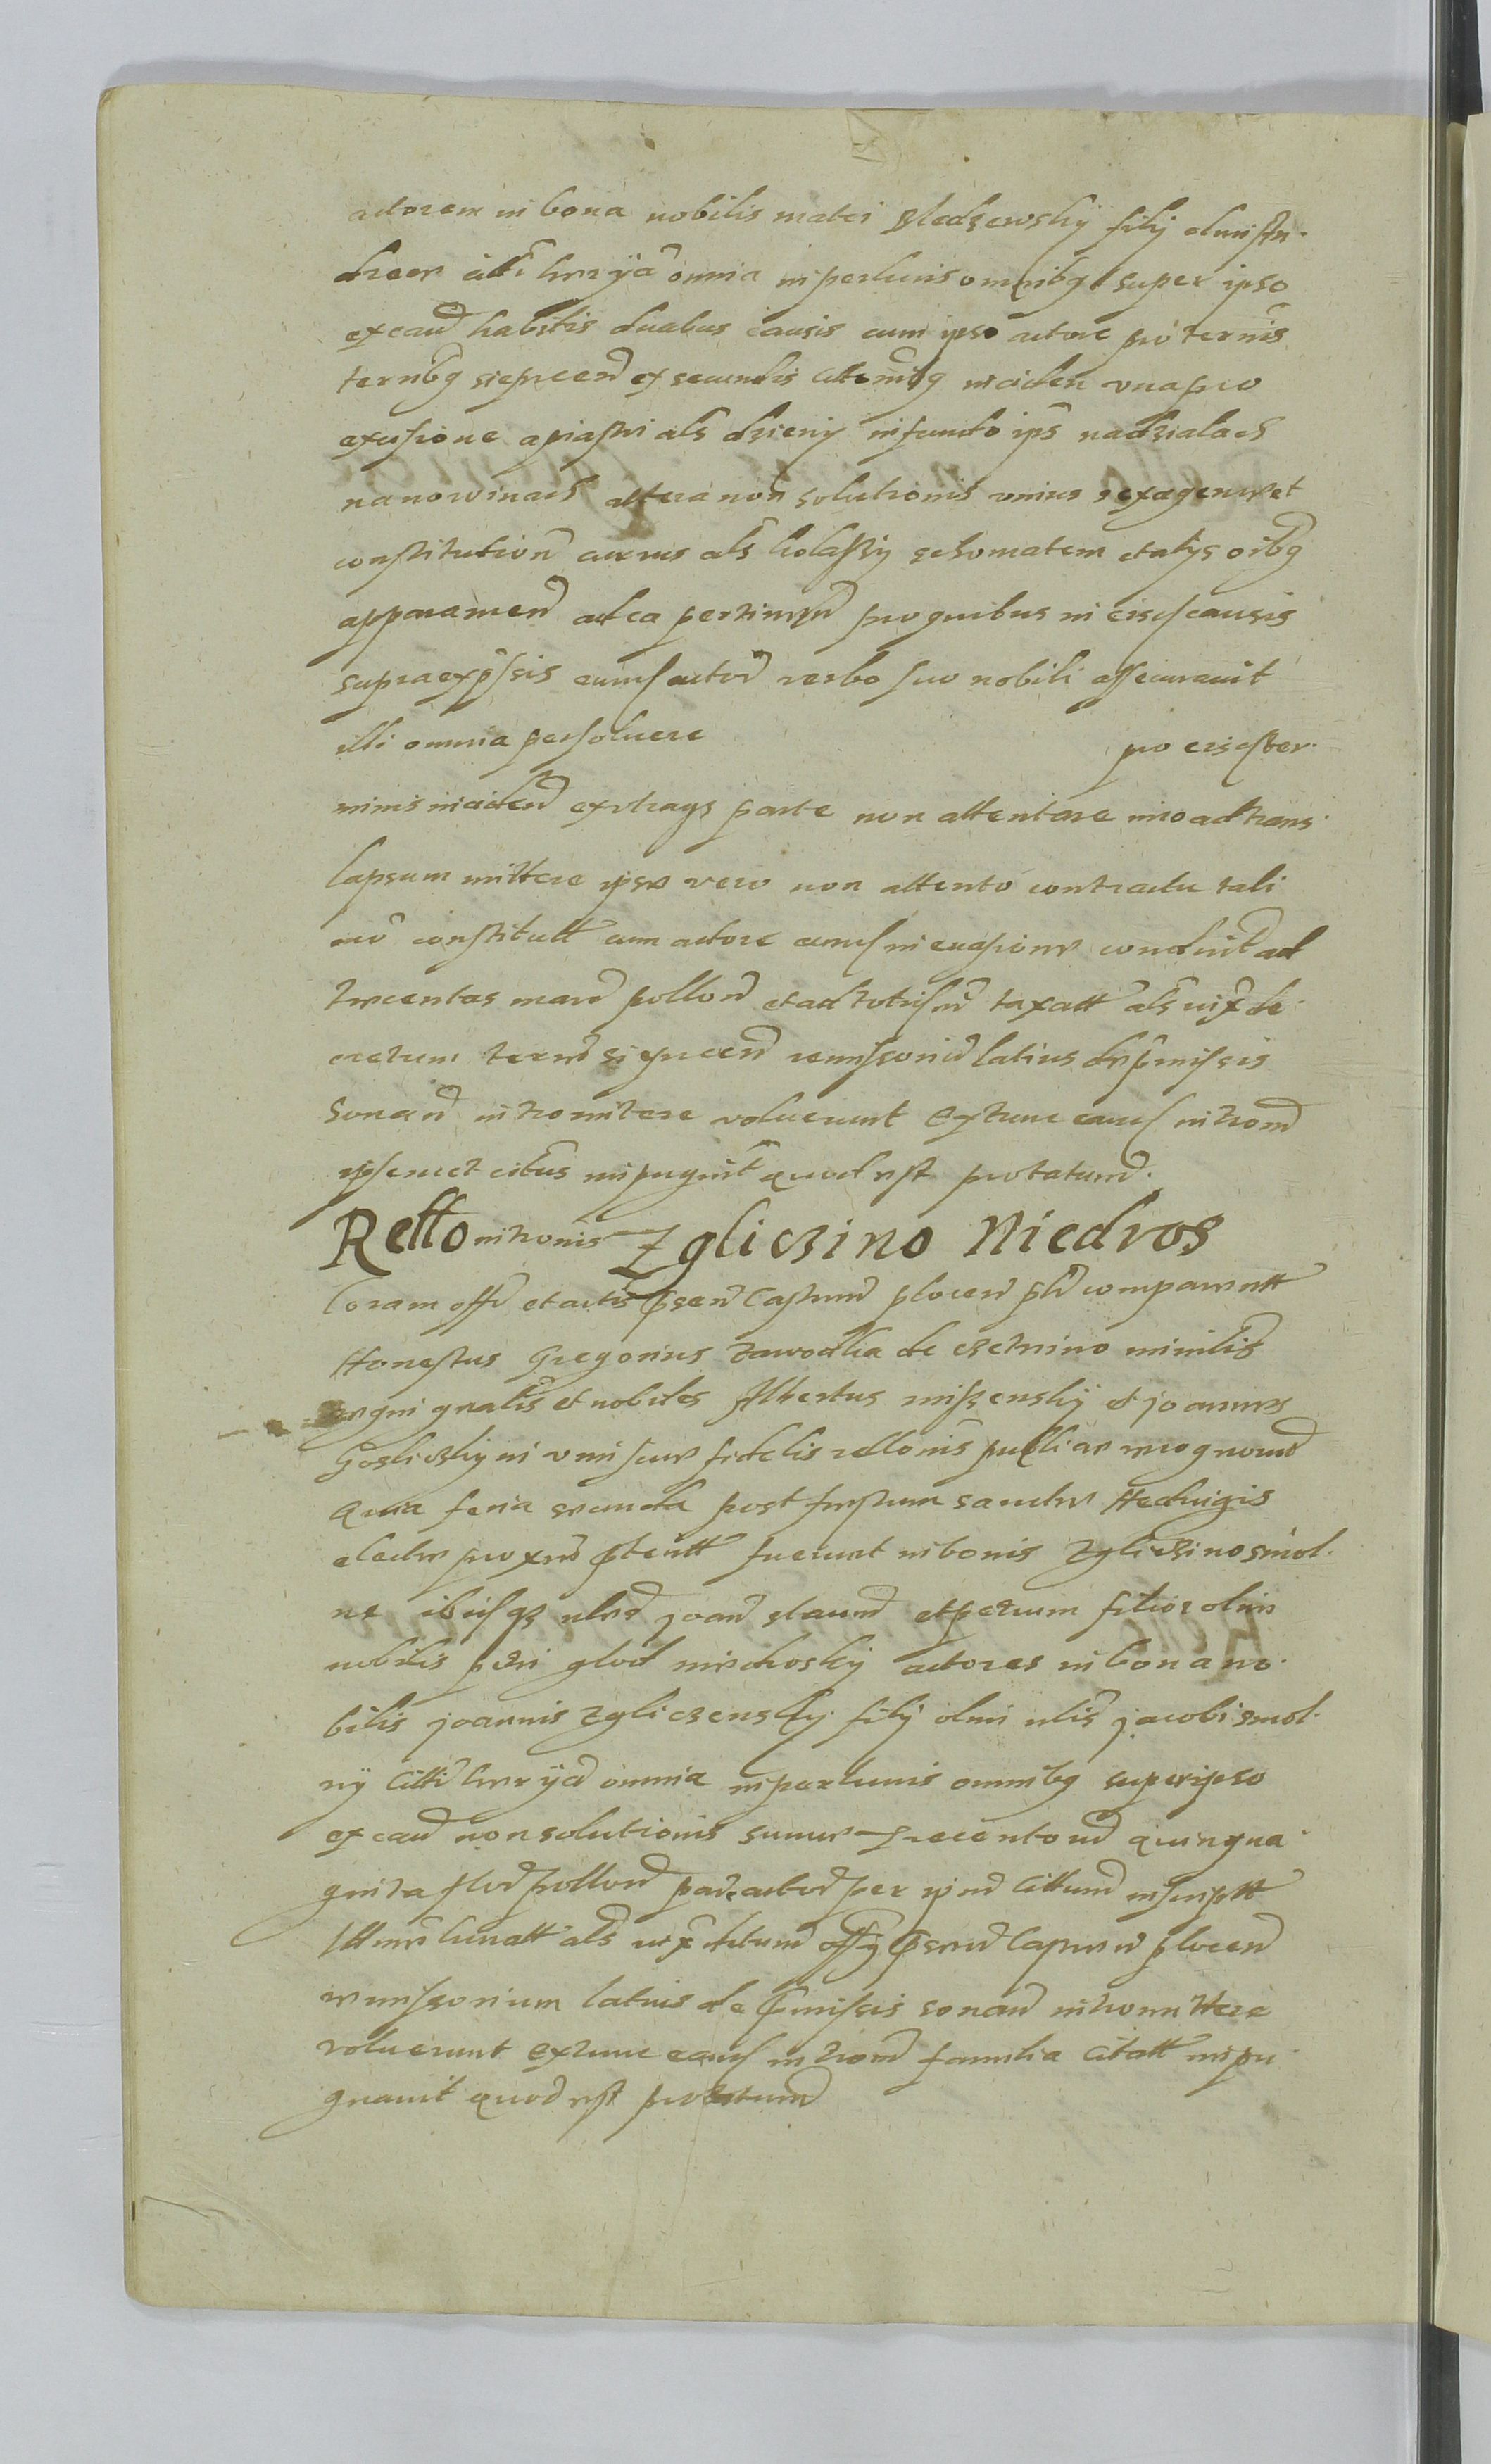 actorem in bona nobilis matei sledzewsky filij olim An-
dreae citti hereda omnia in perlucris omnibq super ipso
ex caus habitis duabus causis cum ipso actore pro ternis
ternibq sieprcen ex secundis citt inciden una pro
excisione apiastri als dzieny in fundo ips nadzialach
nanowinach altera non solutionis unius sexagenae et
constitution currus als kolassy schomatem et alys oibq
apparamen ad ea pertinen pro quibus in eisd causis
supraexpssis eund actor verbo suo nobili assecuravit
illi omnia persoluere pro eisd ter-
minis inciden ex utraqs parte non attentare imo ad trans-
lapsum mittere ipse vero non attento contractu tali
mo constitutt cum actore eund in evasione conduit ad
trecentas marc pollon et ad totid taxatt als iuxta de-
cretum terre sieprcen remissoriu latius de pmissis
sonan intromittere voluerunt Extunc eand introm
ipsemet citus impugnt quod est protatum.
Rello intronis Zgliczino Niedros
Coram offo et actis psen Castren plocen psl comparuntt
Honestus Gregorius Zawodka de czetnino minilis
regni gnalis et nobiles Albertus miszensky et joannes
Goslicsky in vim suae fidelis rellonis publicae recognoun
Quia feria secunda post festum sanctae Heduigis
electae proxe pteritt fuerunt in bonis Zgliczino smol-
ne ibidqz nles joan slaum et petrum filios olim
nobilis petri glod niedrosky actores in bona no-
bilis joannis Zgliczensky filij olim nlis jacobi smol-
ny Citti hereda omnia in perlucris omnibq super ipso
ex caus non solutionis summae trecentoru quinqua-
ginta flor pollon par actor per ipsu Cittum inscriptt
litt lucratt als iuxta ditum offy psen Castren plocen
remissorium latius de pmissis sonan intromittere
voluerunt Extunc eand introm familia Citatt impu-
gnauit quod est protatum